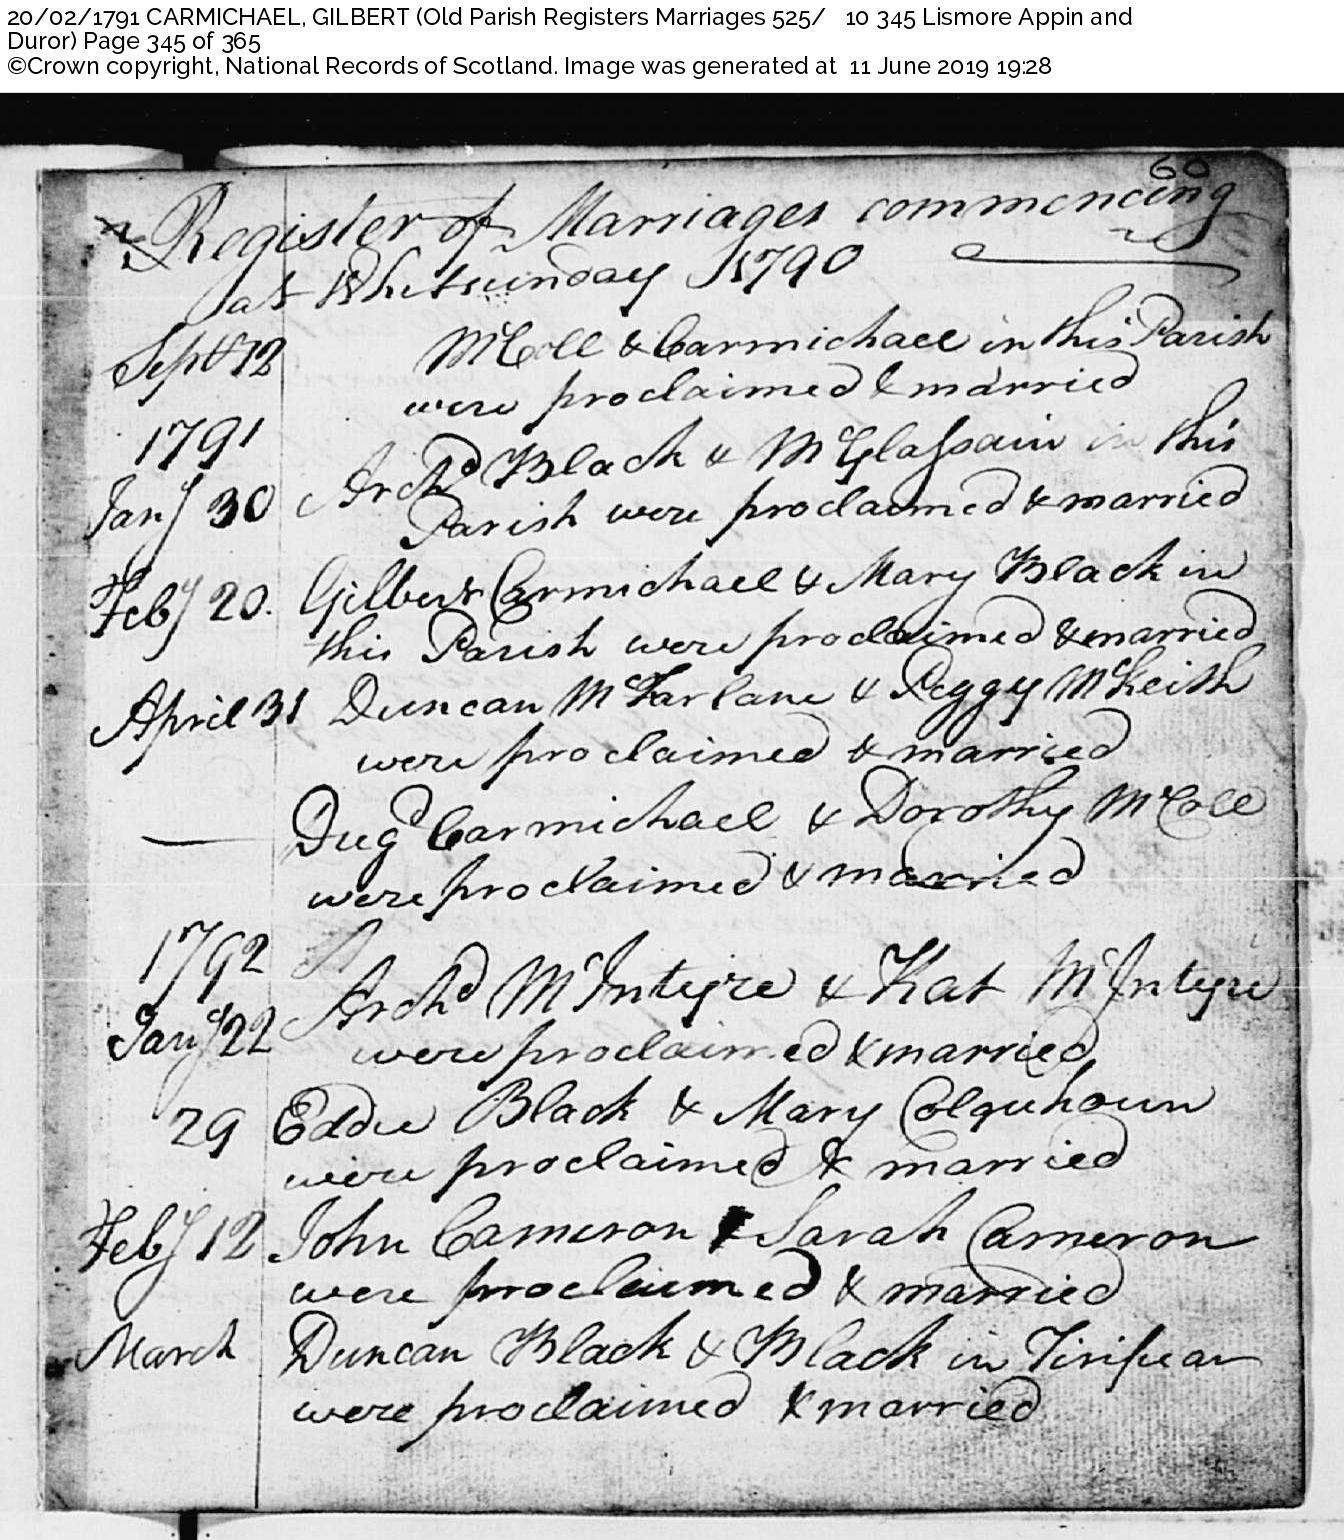 20/02/1791 CARMICHAEL, GILBERT (Old Parish Registers Marriages 525/ 10 345 Lismore Appin and
Duror) Page 345 of 365
©Crown copyright, National Records of Scotland. Image was generated at 11 June 2019 19:28
60
Register of Marriages commencing
at Whitsunday 1790
Septr 12 McColl & Carmichael in this Parish
were proclaimed & married
1791
Jany 30 Archd Black & McGlassain in this
Parish were proclaimed & married
Feby 20. Gilbert Carmichael & Mary Black in
this Parish were proclaimed & married
April 31 Duncan McFarlane & Peggy McKeith
were proclaimed & married
— Dugd Carmichael & Dorothy McColl
were proclaimed & married
1792
Jany 22 Archd McIntyre & Kat McIntyre
were proclaimed & married
29 Eddie Black & Mary Colquhoun
were proclaimed & married
Feby 12 John Cameron & Sarah Cameron
were proclaimed & married
March Duncan Black & Black in Tirifuar
were proclaimed & married